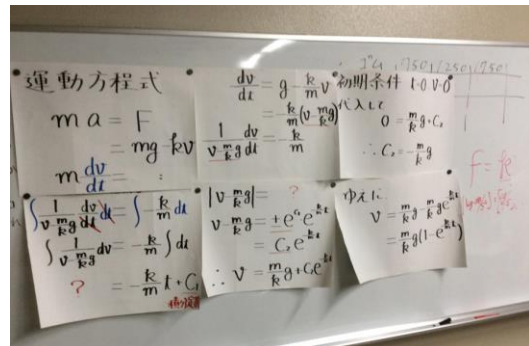 運動方程式
ma = F
= mg - kv
m dv/dt = :
dv/dt = g - k/m v
= - k/m (v - m/k g)
1/(v - m/k g) dv/dt = - k/m
初期条件 t=0 v=0
代入して
0 = m/k g + C₂
∴ C₂ = - m/k g
∫ 1/(v - m/k g) dv/dt dt = ∫ - k/m dt
∫ 1/(v - m/k g) dv = - k/m ∫ dt
? = - k/m t + C₁
積分定数
|v - m/k g| = ?
v - m/k g = ±e^C₁ e^(-k/m t)
= C₂ e^(-k/m t)
∴ v = m/k g + C₂ e^(-k/m t)
ゆえに
v = m/k g - m/k g e^(-k/m t)
= m/k g (1 - e^(-k/m t))
f = k